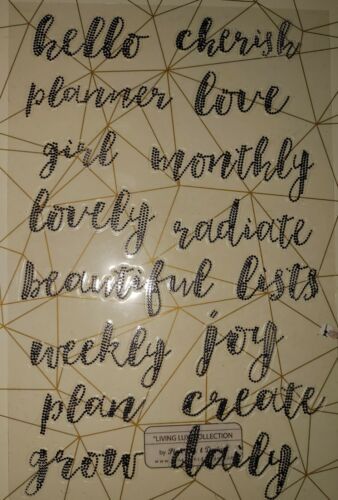 hello cherish
planner love
girl monthly
lovely radiate
beautiful lists
weekly joy
plan create
"LIVING LUX COLLECTION
by
grow daily